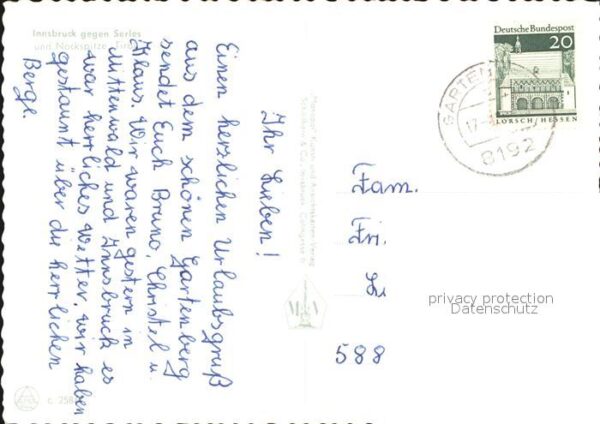 Innsbruck gegen Serles
und Nockspitze, Tirol
Ihr Lieben!
Einen herzlichen Urlaubsgruß
aus dem schönen Gartenberg
sendet Euch Bruno, Christel u.
Klaus. Wir waren gestern in
Mittenwald und Innsbruck es
war herrliches Wetter, wir haben
gestaunt über die herrlichen
Berge.
Deutsche Bundespost
20
LORSCH/HESSEN
GARTEN
17.
8192
Fam.
Fri.
588
privacy protection
Datenschutz